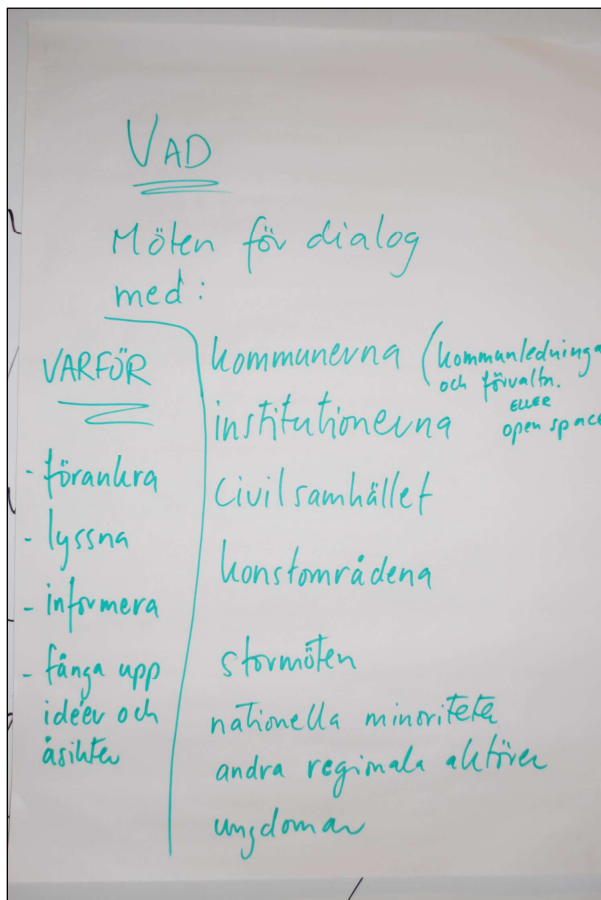 VAD
Möten för dialog
med:
VARFÖR
- förankra
- lyssna
- informera
- fånga upp
idéer och
åsikter
kommunerna (kommunledninga
och förvaltn.
ELLER
open space
institutionerna
Civilsamhället
konstområdena
stormöten
nationella minoriteter
andra regionala aktörer
ungdomar